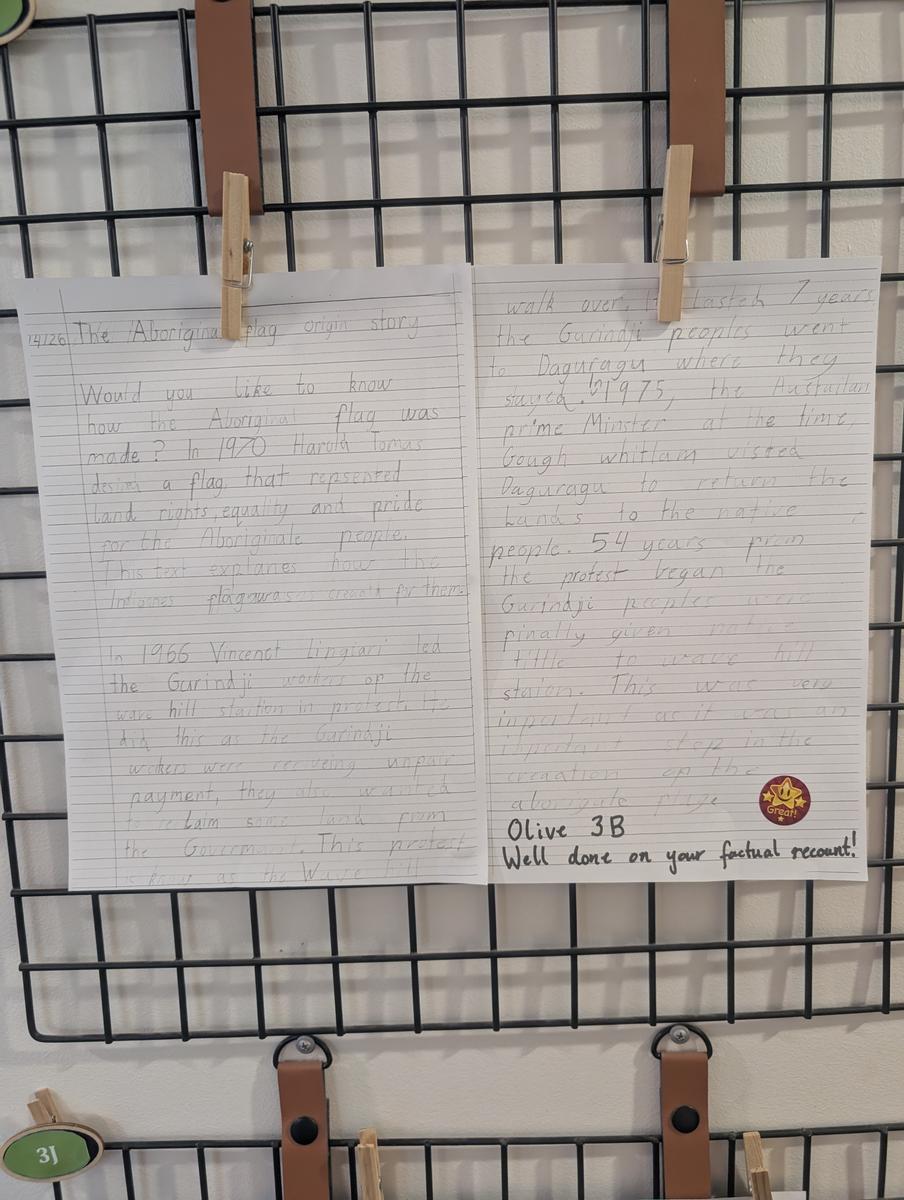 14/26 The Aboriginal flag origin story
Would you like to know
how the Aboriginal flag was
made? In 1970 Harold Tomas
desined a flag that repsented
land rights, equality and pride
for the Aboriginale people.
This text explanes how the
flag was creatd for them.
In 1966 Vincenct lingiari led
the Gurindji workers of the
wave hill staition in protest. He
did this as the Gurindji
wokers were reciveing unfair
payment, they also wanted
to reclaim some land from
the Goverment. This protest
is know as the Wave hill
walk over. It lasted 7 years
the Gurindji peoples went
to Daguragu where they
stayed. In 1975, the Austrailan
prime Minster at the time,
Gough whitlam visted
Daguragu to return the
Lands to the native
people. 54 years from
the protest began the
Gurindji peoples were
finally given native
tittle to wave hill
staion. This was very
inportant as it was an
inportant step in the
creaation of the
Olive 3B
Well done on your factual recount!
Great!
3J